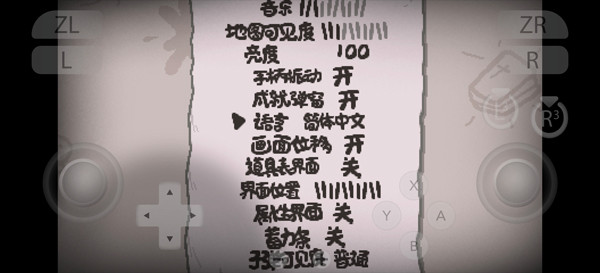 音乐
ZL
ZR
地图可见度
亮度 100
L
R
手柄振动 开
成就弹窗 开
R³
▶ 语言 简体中文
画面位移 开
道具表界面 关
X
界面位置
属性界面 关
Y
A
蓄力条 关
B
可见度 普通